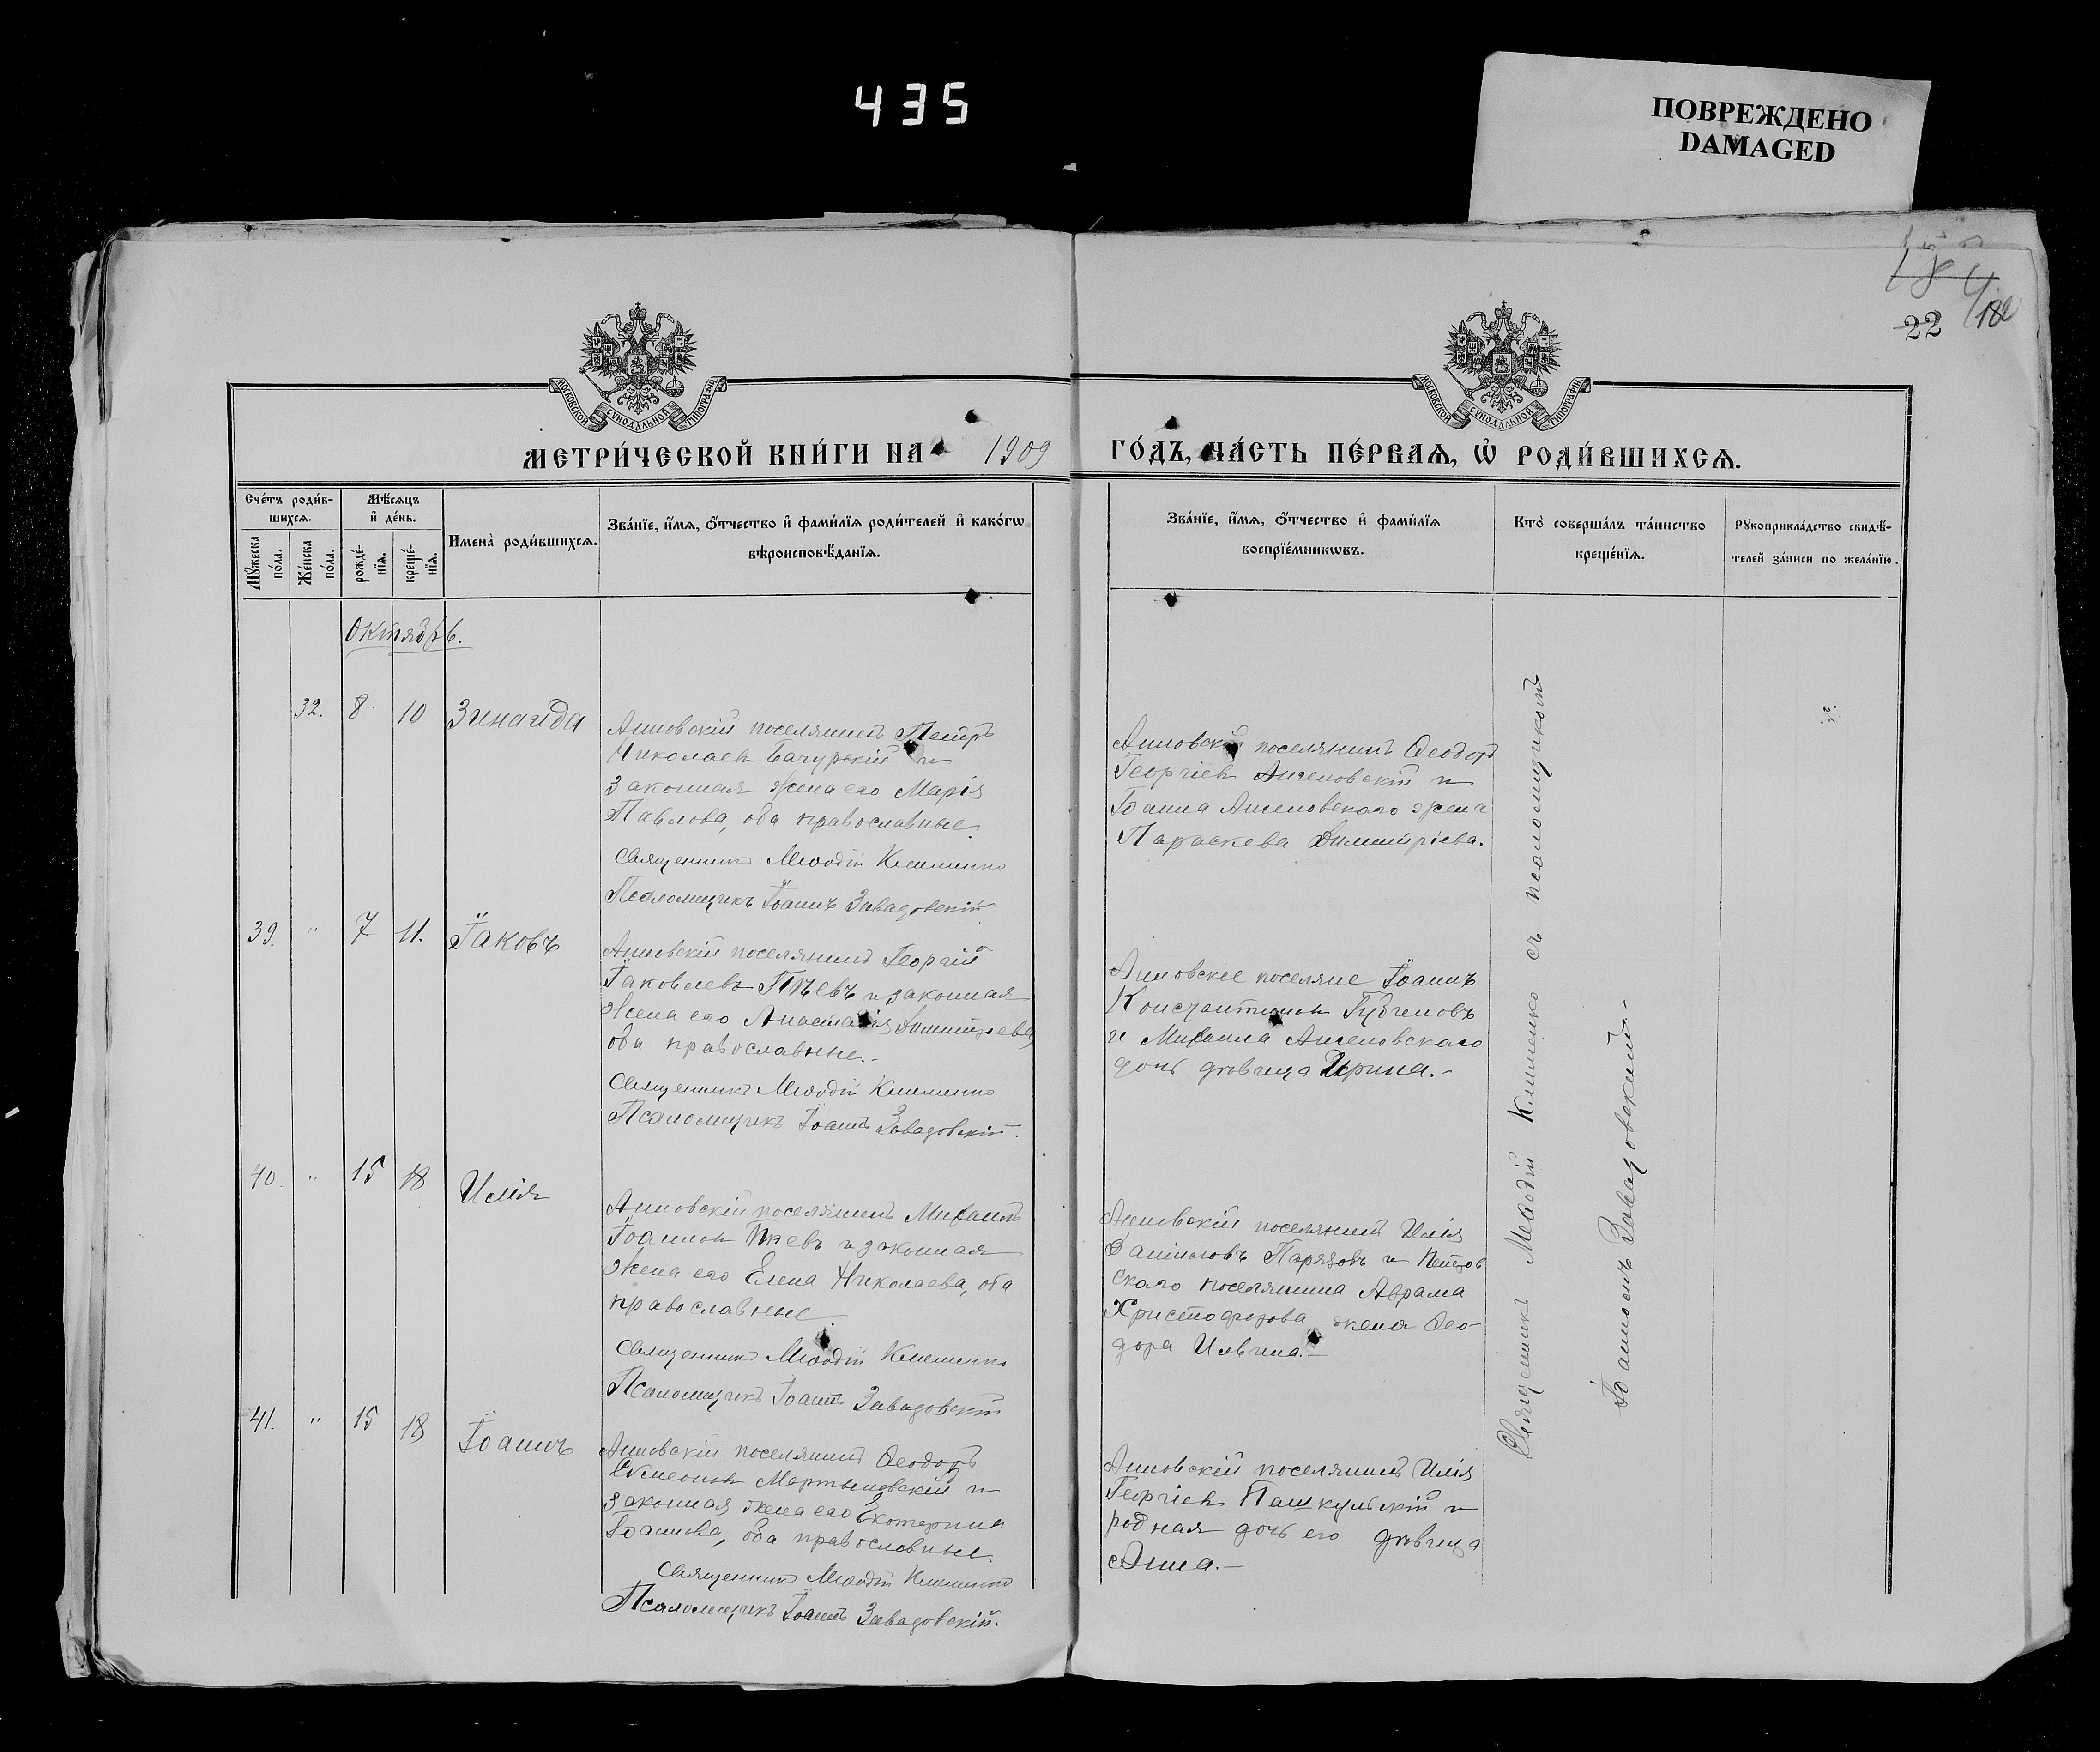 435
ПОВРЕЖДЕНО
DAMAGED
22
МОСКОВСКОЙ СѴНОДАЛЬНОЙ ТИПОГРАФІИ
МОСКОВСКОЙ СѴНОДАЛЬНОЙ ТИПОГРАФІИ
МЕТРИ́ЧЕСКОЙ КНИ́ГИ НА 1909 ГО́ДЪ, ЧА́СТЬ ПЕ́РВАѦ, Ѡ҆ РОДИ́ВШИХСѦ.
Сче́тъ роди́в-
шихсѧ.
Мѣ́сѧцъ
и҆ де́нь.
Мꙋ́жеска
по́ла.
Же́нска
по́ла.
рожде́-
нїѧ.
креще́-
нїѧ.
Имена̀ роди́вшихсѧ.
Зва́нїе, и҆́мѧ, ѻ҆́тчество и҆ фами́лїѧ роди́телей и҆ како́гѡ
вѣроисповѣ́данїѧ.
Зва́нїе, и҆́мѧ, ѻ҆́тчество и҆ фами́лїѧ
воспрїе́мникѡвъ.
Кто̀ соверша́лъ та́инство
креще́нїѧ.
Рꙋкоприкла́дство свидѣ́-
телей за́писи по жела́нїю.
Октябрь.
32. 8 10 Зинаида
Анновскій поселянинъ Петръ
Николаевъ Бачурскій и
законная жена его Марія
Павлова, оба православные.
Священникъ Меѳодій Клименко
Псаломщикъ Іоаннъ Завадовскій
Анновскій поселянинъ Ѳеодоръ
Георгіевъ Ангеловскій и
Іоанна Ангеловскаго жена
Параскева Димитріева.
39. " 7 11. Іаковъ
Анновскій поселянинъ Георгій
Іаковлевъ и законная
жена его Анастасія Димитріева,
оба православные.-
Священникъ Меѳодій Клименко
Псаломщикъ Іоаннъ Завадовскій.
Анновскіе поселяне Іоаннъ
Константиновъ Губченовъ
и Михаила Ангеловскаго
дочь дѣвица Ирина.-
40. " 15 18 Илія
Анновскій поселянинъ Михаилъ
Іоанновъ и законная
жена его Елена Николаева, оба
православные.
Священникъ Меѳодій Клименко
Псаломщикъ Іоаннъ Завадовскій
Анновскій поселянинъ Илія
Даніиловъ Парязовъ и
скаго поселянина Аврама
Христофорова жена Ѳео-
дора Ильина.-
41. " 15 18 Іоаннъ
Анновскій поселянинъ Ѳеодоръ
Симеоновъ Мартыновскій и
законная жена его Екатерина
Іоаннова, оба православные.
Священникъ Меѳодій Клименко
Псаломщикъ Іоаннъ Завадовскій.
Анновскій поселянинъ Илія
Георгіевъ Пашкульскій и
родная дочь его дѣвица
Анна.-
Священникъ Меѳодій Клименко съ псаломщикомъ
Іоанномъ Завадовскимъ.-